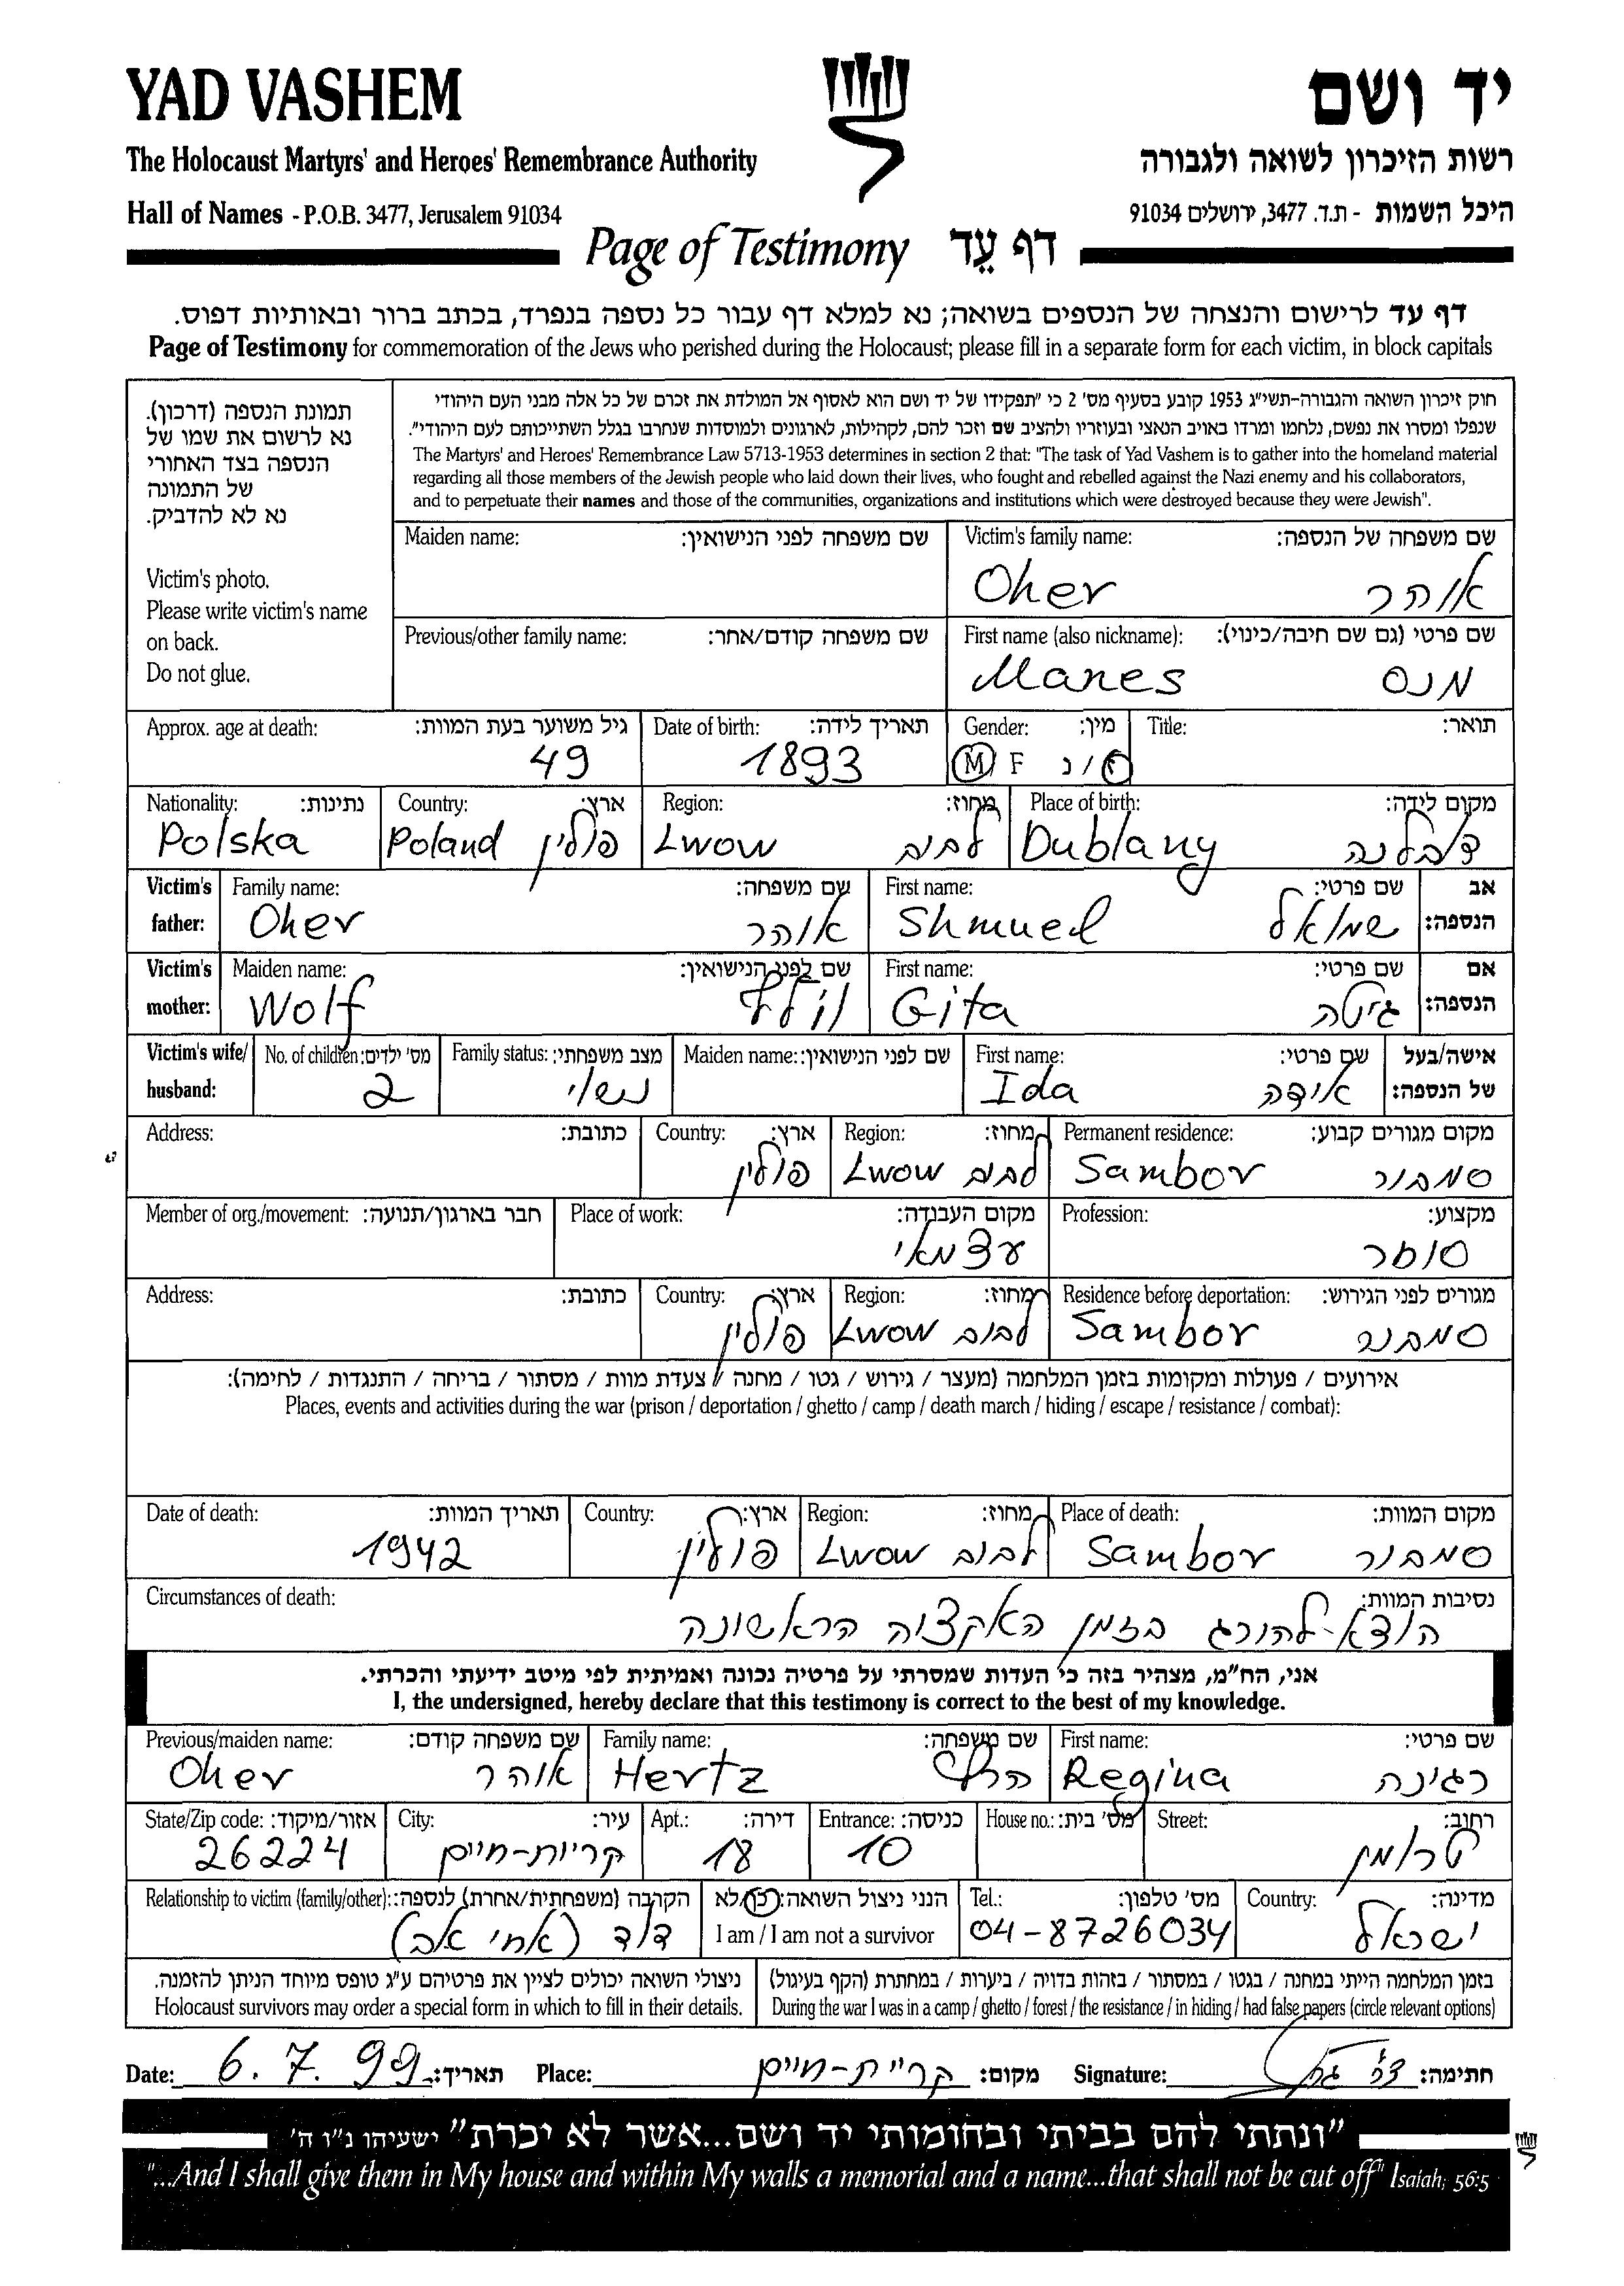 YAD VASHEM
יד ושם
The Holocaust Martyrs' and Heroes' Remembrance Authority
רשות הזיכרון לשואה ולגבורה
Hall of Names - P.O.B. 3477, Jerusalem 91034
היכל השמות - ת.ד. 3477, ירושלים 91034
Page of Testimony דף עֵד
דף עד לרישום והנצחה של הנספים בשואה; נא למלא דף עבור כל נספה בנפרד, בכתב ברור ובאותיות דפוס.
Page of Testimony for commemoration of the Jews who perished during the Holocaust; please fill in a separate form for each victim, in block capitals
תמונת הנספה (דרכון).
נא לרשום את שמו של
הנספה בצד האחורי
של התמונה
נא לא להדביק.
Victim's photo.
Please write victim's name
on back.
Do not glue.
חוק זיכרון השואה והגבורה-תשי"ג 1953 קובע בסעיף מס' 2 כי "תפקידו של יד ושם הוא לאסוף אל המולדת את זכרם של כל אלה מבני העם היהודי
שנפלו ומסרו את נפשם, נלחמו ומרדו באויב הנאצי ובעוזריו ולהציב שם וזכר להם, לקהילות, לארגונים ולמוסדות שנחרבו בגלל השתייכותם לעם היהודי".
The Martyrs' and Heroes' Remembrance Law 5713-1953 determines in section 2 that: "The task of Yad Vashem is to gather into the homeland material
regarding all those members of the Jewish people who laid down their lives, who fought and rebelled against the Nazi enemy and his collaborators,
and to perpetuate their names and those of the communities, organizations and institutions which were destroyed because they were Jewish".
Maiden name: שם משפחה לפני הנישואין: Victim's family name: שם משפחה של הנספה:
Oher אוהר
Previous/other family name: שם משפחה קודם/אחר: First name (also nickname): שם פרטי (גם שם חיבה/כינוי):
Manes מנס
Approx. age at death: גיל משוער בעת המוות: Date of birth: תאריך לידה: Gender: מין: Title: תואר:
49 1893 M F ז/נ
Nationality: נתינות: Country: ארץ: Region: מחוז: Place of birth: מקום לידה:
Polska Poland פולין Lwow לבוב Dublany דובלנה
Victim's Family name: שם משפחה: First name: שם פרטי: אב
father: Oher אוהר Shmuel שמואל הנספה:
Victim's Maiden name: שם לפני הנישואין: First name: שם פרטי: אם
mother: Wolf וולף Gita גיטה הנספה:
Victim's wife/ No. of children: מס' ילדים: Family status: מצב משפחתי: Maiden name: שם לפני הנישואין: First name: שם פרטי: אישה/בעל
husband: 2 נשוי Ida אידה של הנספה:
Address: כתובת: Country: ארץ: Region: מחוז: Permanent residence: מקום מגורים קבוע:
פולין Lwow לבוב Sambor סמבור
Member of org./movement: חבר בארגון/תנועה: Place of work: מקום העבודה: Profession: מקצוע:
עצמאי סוחר
Address: כתובת: Country: ארץ: Region: מחוז: Residence before deportation: מגורים לפני הגירוש:
פולין Lwow לבוב Sambor סמבור
אירועים / פעולות ומקומות בזמן המלחמה (מעצר / גירוש / גטו / מחנה / צעדת מוות / מסתור / בריחה / התנגדות / לחימה):
Places, events and activities during the war (prison / deportation / ghetto / camp / death march / hiding / escape / resistance / combat):
Date of death: תאריך המוות: Country: ארץ: Region: מחוז: Place of death: מקום המוות:
1942 פולין Lwow לבוב Sambor סמבור
Circumstances of death: נסיבות המוות:
הוצא-להורג בזמן האקציה הראשונה
אני, הח"מ, מצהיר בזה כי העדות שמסרתי על פרטיה נכונה ואמיתית לפי מיטב ידיעתי והכרתי.
I, the undersigned, hereby declare that this testimony is correct to the best of my knowledge.
Previous/maiden name: שם משפחה קודם: Family name: שם משפחה: First name: שם פרטי:
Oher אוהר Hertz הרץ Regina רגינה
State/Zip code: אזור/מיקוד: City: עיר: Apt.: דירה: Entrance: כניסה: House no.: מס' בית: Street: רחוב:
26224 קריות-חיים 18 10 טרומן
Relationship to victim (family/other): הקרבה (משפחתית/אחרת) לנספה: הנני ניצול השואה: כן/לא Tel.: מס' טלפון: Country: מדינה:
דוד (אחי אב) I am / I am not a survivor 04-8726034 ישראל
ניצולי השואה יכולים לציין את פרטיהם ע"ג טופס מיוחד הניתן להזמנה. בזמן המלחמה הייתי במחנה / בגטו / במסתור / בזהות בדויה / ביערות / במחתרת (הקף בעיגול)
Holocaust survivors may order a special form in which to fill in their details. During the war I was in a camp / ghetto / forest / the resistance / in hiding / had false papers (circle relevant options)
Date: 6.7.99 תאריך: Place: קריית-חיים מקום: Signature: חתימה:
"ונתתי להם בביתי ובחומותי יד ושם...אשר לא יכרת" ישעיהו נ"ו ה'
"...And I shall give them in My house and within My walls a memorial and a name...that shall not be cut off" Isaiah, 56:5